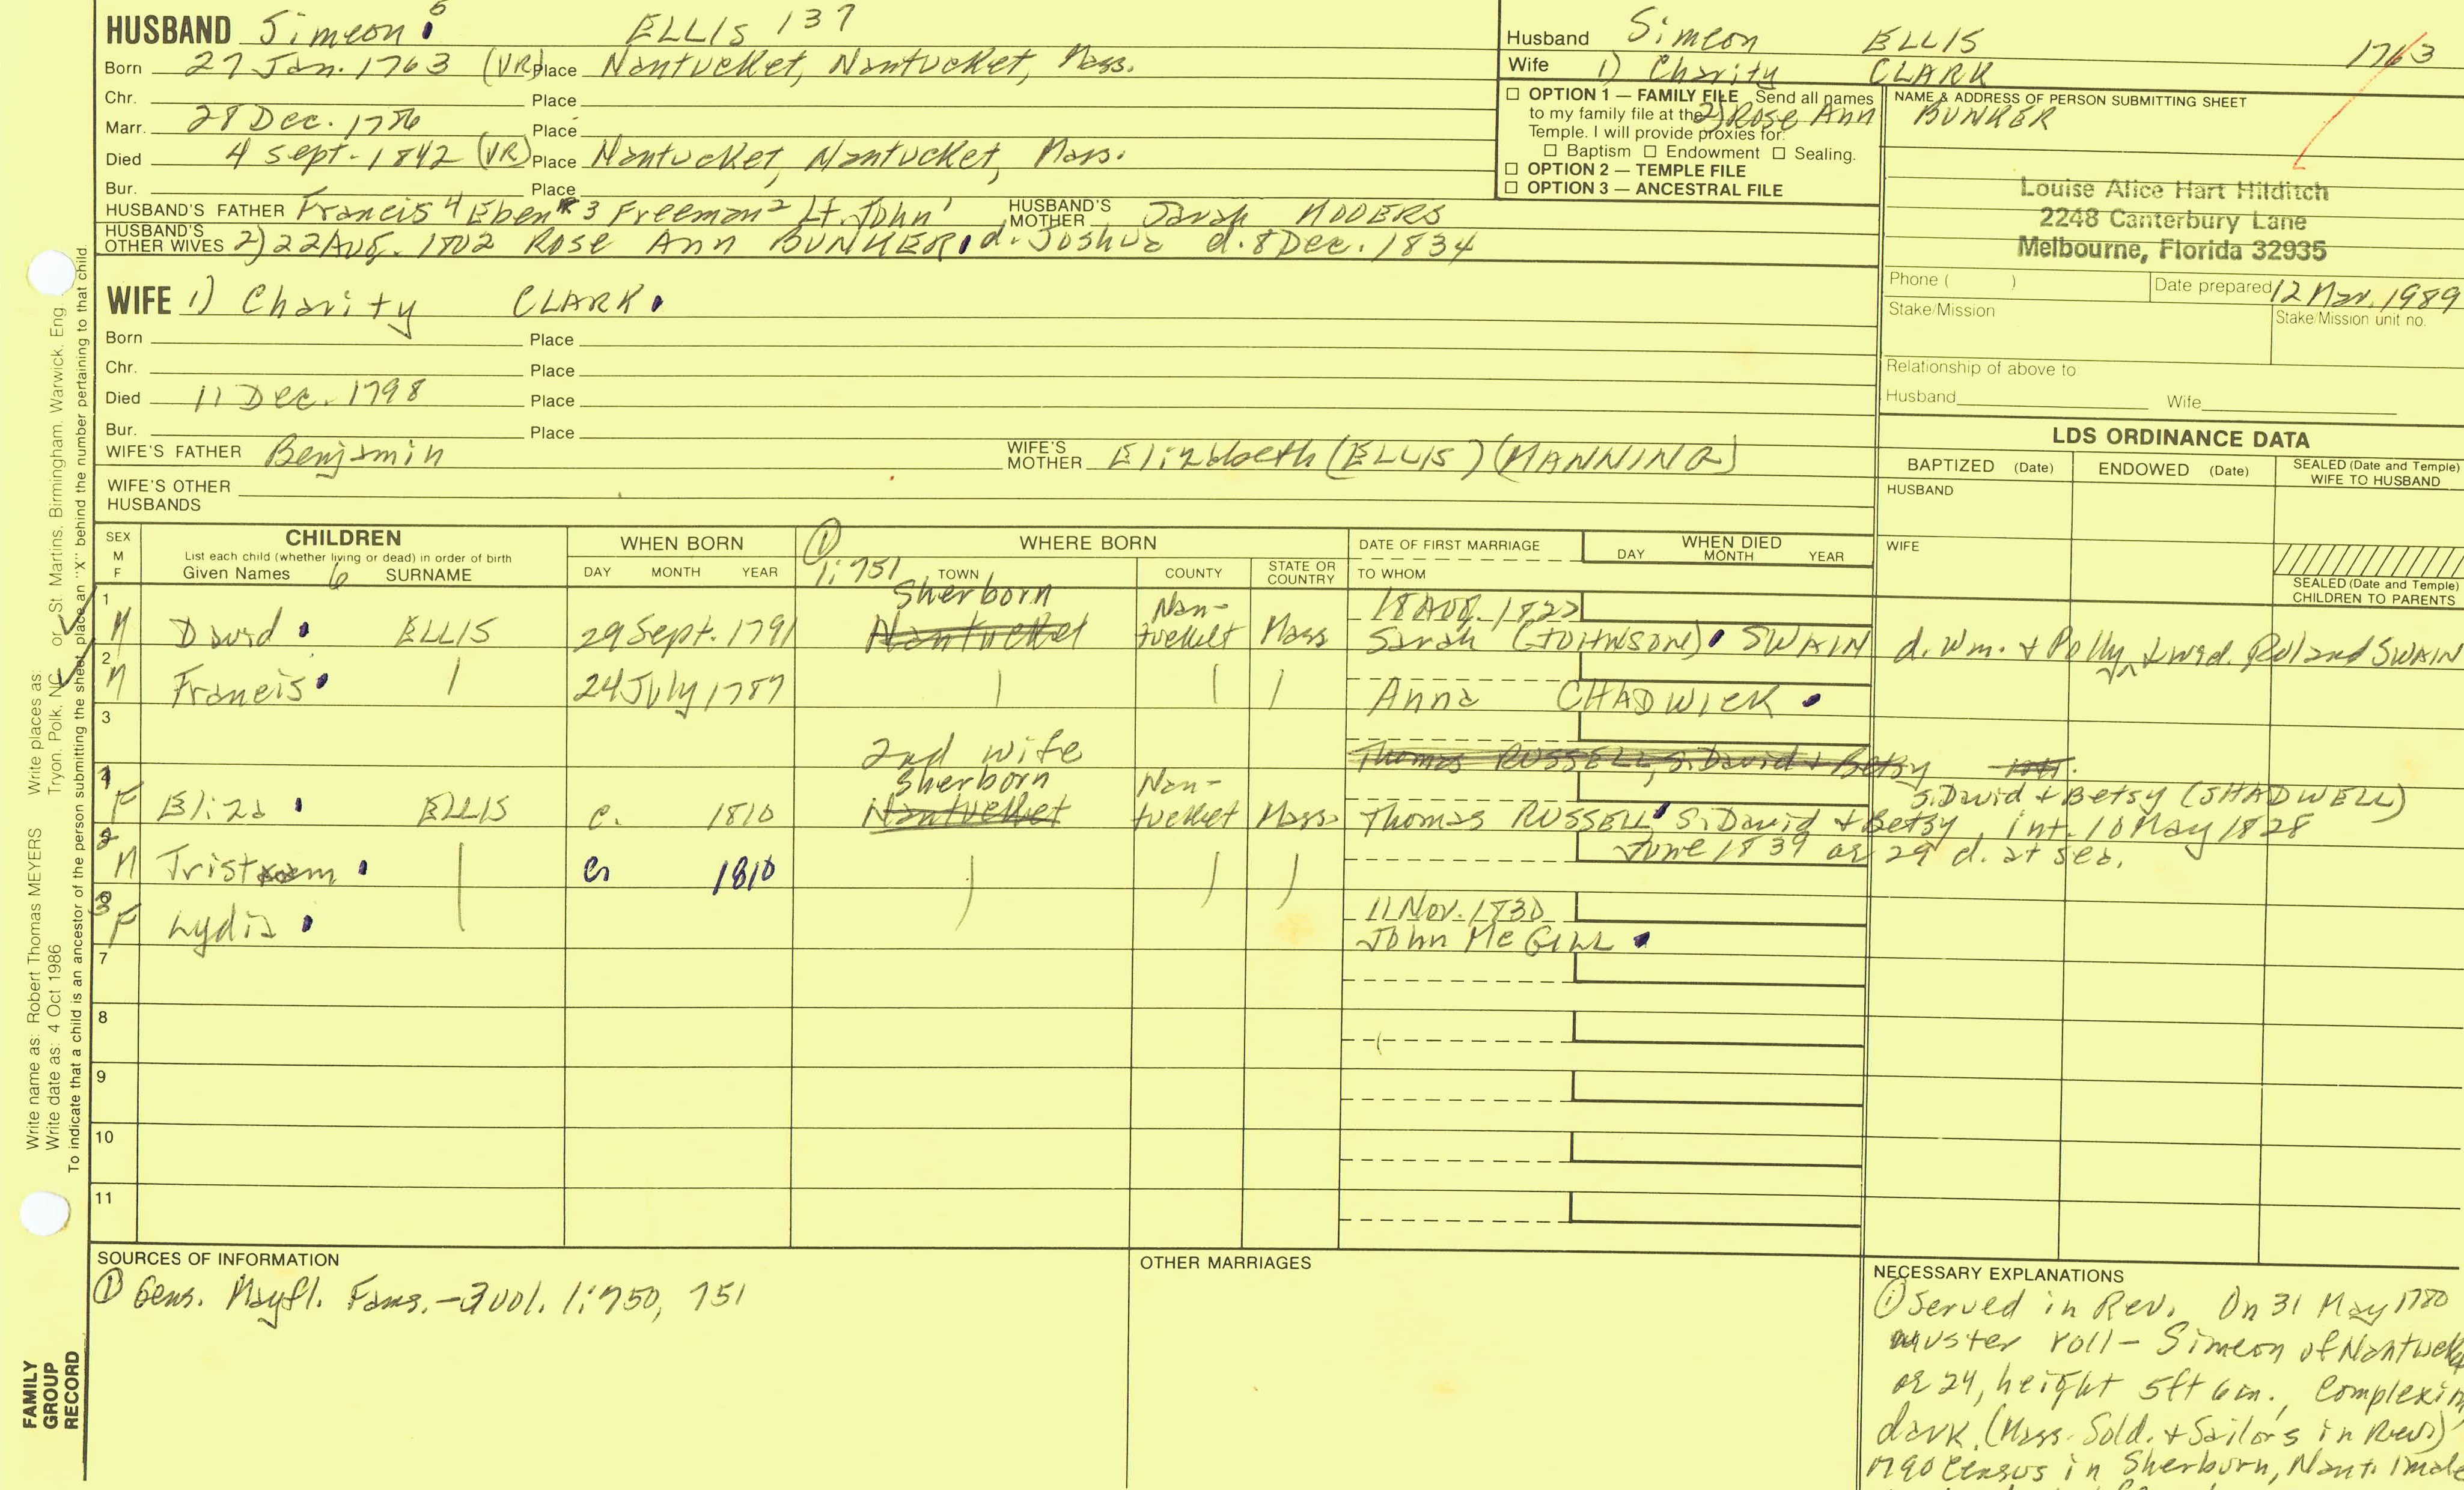 HUSBAND Simeon 5 ELLIS 137
Born 27 Jan. 1763 (VR) Place Nantucket, Nantucket, Mass.
Chr. Place
Marr. 28 Dec. 1786 Place
Died 4 Sept. 1842 (VR) Place Nantucket, Nantucket, Mass.
Bur. Place
HUSBAND'S FATHER Francis 4 Eben 3 Freeman 2 Lt. John 1 HUSBAND'S MOTHER Sarah
HUSBAND'S OTHER WIVES 2) 22 Aug. 1802 Rose Ann BUNKER, d. Joshua d. 8 Dec. 1834
Husband Simeon ELLIS 1763
Wife 1) Charity CLARK
2) Rose Ann BUNKER
☐ OPTION 1 — FAMILY FILE Send all names
to my family file at the
Temple. I will provide proxies for:
☐ Baptism ☐ Endowment ☐ Sealing.
☐ OPTION 2 — TEMPLE FILE
☐ OPTION 3 — ANCESTRAL FILE
NAME & ADDRESS OF PERSON SUBMITTING SHEET
Louise Alice Hart Hilditch
2248 Canterbury Lane
Melbourne, Florida 32935
Phone ( ) Date prepared 12 Mar. 1989
Stake/Mission Stake/Mission unit no.
Relationship of above to
Husband Wife
WIFE 1) Charity CLARK
Born Place
Chr. Place
Died 11 Dec. 1798 Place
Bur. Place
WIFE'S FATHER Benjamin WIFE'S MOTHER Elizabeth (ELLIS) (MANNING)
WIFE'S OTHER HUSBANDS
LDS ORDINANCE DATA
BAPTIZED (Date) ENDOWED (Date) SEALED (Date and Temple) WIFE TO HUSBAND
HUSBAND
WIFE
SEALED (Date and Temple) CHILDREN TO PARENTS
SEX M F
CHILDREN
List each child (whether living or dead) in order of birth
Given Names 6 SURNAME
WHEN BORN
DAY MONTH YEAR
① 1:751
WHERE BORN
TOWN COUNTY STATE OR COUNTRY
DATE OF FIRST MARRIAGE
TO WHOM
WHEN DIED
DAY MONTH YEAR
1 M David ELLIS 29 Sept. 1791 Sherborn Nantucket Nan-tucket Mass 18 Aug. 1822 Sarah (JOHNSON) SWAIN d. Wm. + Polly wid. Roland SWAIN
2 M Francis 24 July 1787 Anna CHADWICK
3
2nd wife
Thomas RUSSELL, s. David + Betsy int.
4 F Eliza ELLIS c. 1810 Sherborn Nantucket Nan-tucket Mass. Thomas RUSSELL s. David + Betsy, int. 10 May 1828
s. David + Betsy (SHADWELL)
5 M Tristram 1810 June 1839 ae 29 d. at sea.
6 3 F Lydia 11 Nov. 1830 John McGILL
7
8
9
10
11
SOURCES OF INFORMATION
① Gens. Mayfl. Fams.-3 vol. 1:750, 751
OTHER MARRIAGES
NECESSARY EXPLANATIONS
① Served in Rev. On 31 May 1780
muster roll- Simeon of
ae 24, height 5ft 6in.,
dark. (Mass. Sold. + Sailors in Rev)
1790 Census in Sherburn, Nant. 1 male
Write name as: Robert Thomas MEYERS Write places as: Tryon, Polk, NC or St Martins, Birmingham, Warwick, Eng.
Write date as: 4 Oct 1986
To indicate that a child is an ancestor of the person submitting the sheet, place an "X" behind the number pertaining to that child.
FAMILY
GROUP
RECORD